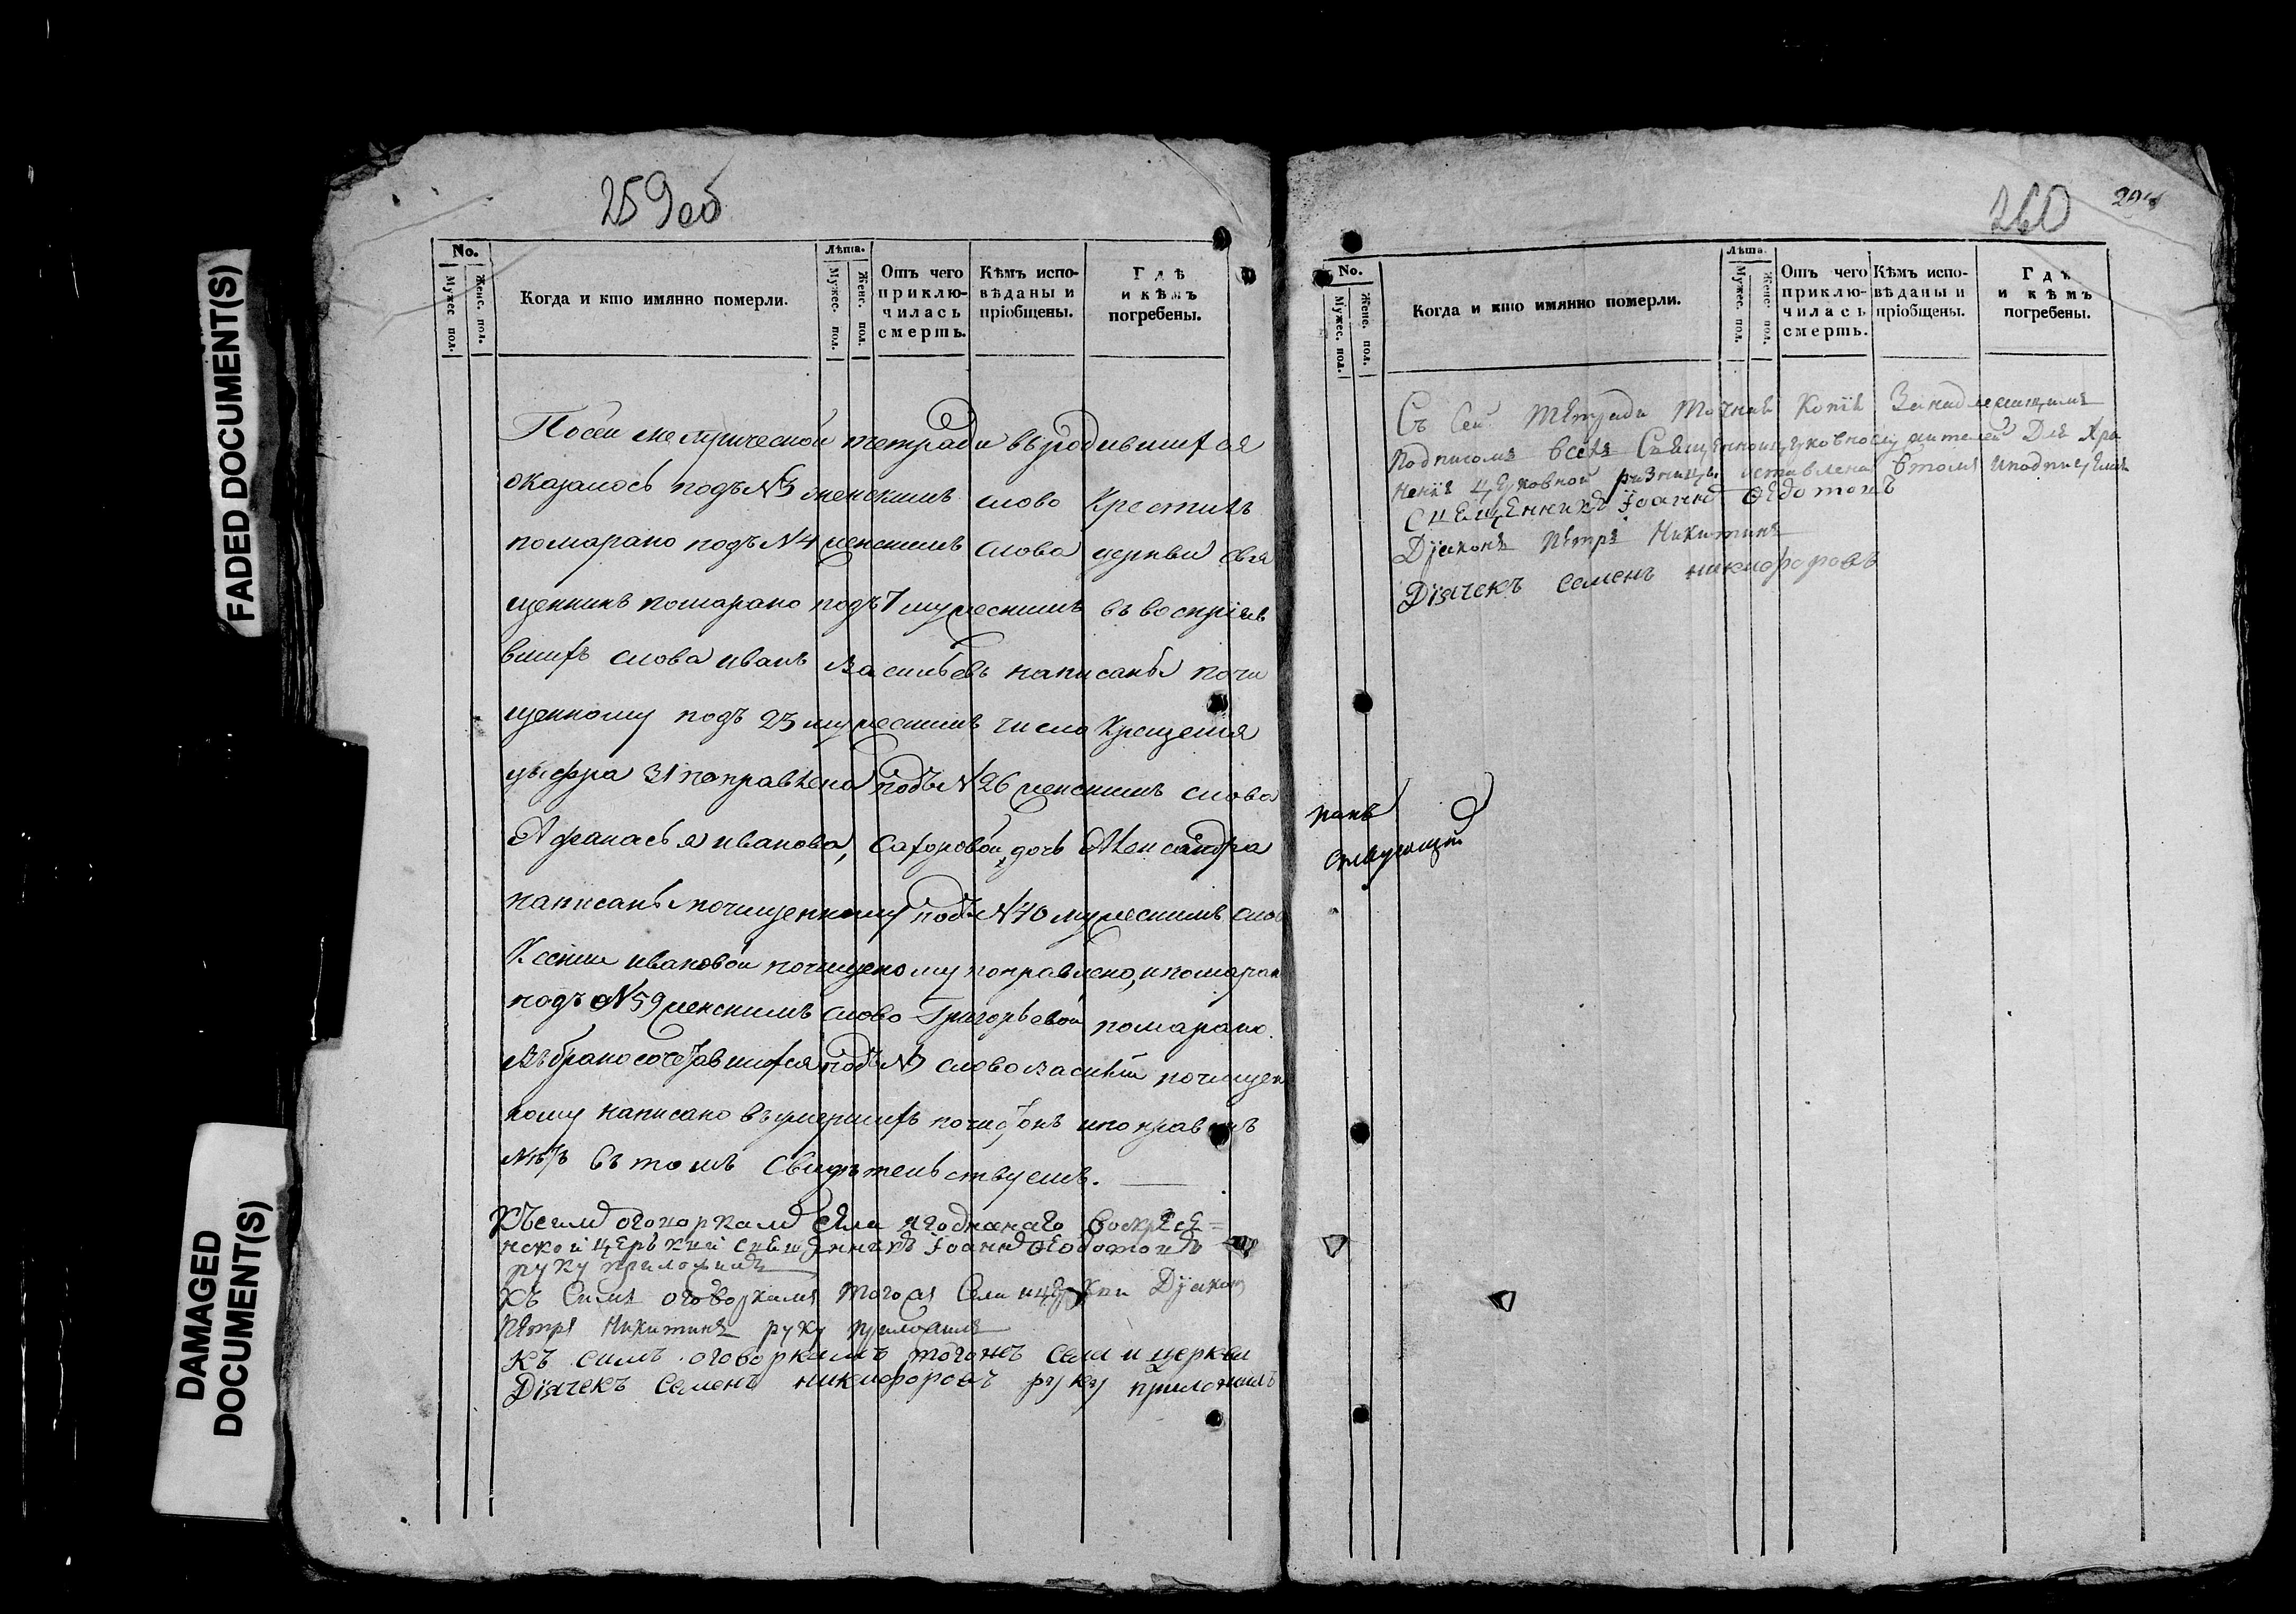 FADED DOCUMENT(S)
DAMAGED
DOCUMENT(S)
259об
No.
Мужес. пол.
Женс. пол.
Когда и кто имянно померли.
Лѣта.
Мужес. пол.
Женс. пол.
Отъ чего
приклю-
чилась
смерть.
Кѣмъ испо-
вѣданы и
пріобщены.
Гдѣ
и кѣмъ
погребены.
По сей метрической тетради въ родившихся
оказалось подъ №3 женскимъ слово Крестилъ
помарано подъ N4 женскимъ слова церкви свя
щенникъ помарано подъ 7 мужескимъ въ воспріяв
вшихъ слова иванъ Васильевъ написаны почи
щенному подъ 23 мужескимъ число Крещенія
цыфра 31 поправлена подъ N26 женскимъ слова
Афанасья иванова, дочь Александра
написаны почищенному подъ N40 мужескимъ сло
Ксении ивановой почищеному поправлено, и помаран
подъ N59 женскимъ слово Григорьевой помарано.
Въ бракосочетавшихся подъ слово василій почищен
ному написано въ умершихъ
въ томъ свидѣтельствуемъ.
Къ симъ оговоркамъ села ягоднаго воскресе=
нской церькви священникъ Іоаннъ Ѳедотовъ
руку приложилъ
Къ симъ оговоркамъ тогожъ села и церкви Дьяконъ
Петръ Никитинъ руку приложилъ
Къ симъ оговоркамъ тогожъ села и церкви
Діячекъ Семенъ никифоровъ руку приложилъ
260
No.
Мужес. пол.
Женс. пол.
Когда и кто имянно померли.
Лѣта.
Мужес. пол.
Женс. пол.
Отъ чего
приклю-
чилась
смерть.
Кѣмъ испо-
вѣданы и
пріобщены.
Гдѣ
и кѣмъ
погребены.
Съ сей тетради точная копія за надлежащимъ
подписомъ всехъ Священноцерковнослужителей Для хра
ненія церковной ризницы оставлена в томъ и подписуемся
Священникъ Іоаннъ Ѳедотовъ
Дьяконъ Петръ Никитинъ
Діячекъ Семенъ никифоровъ